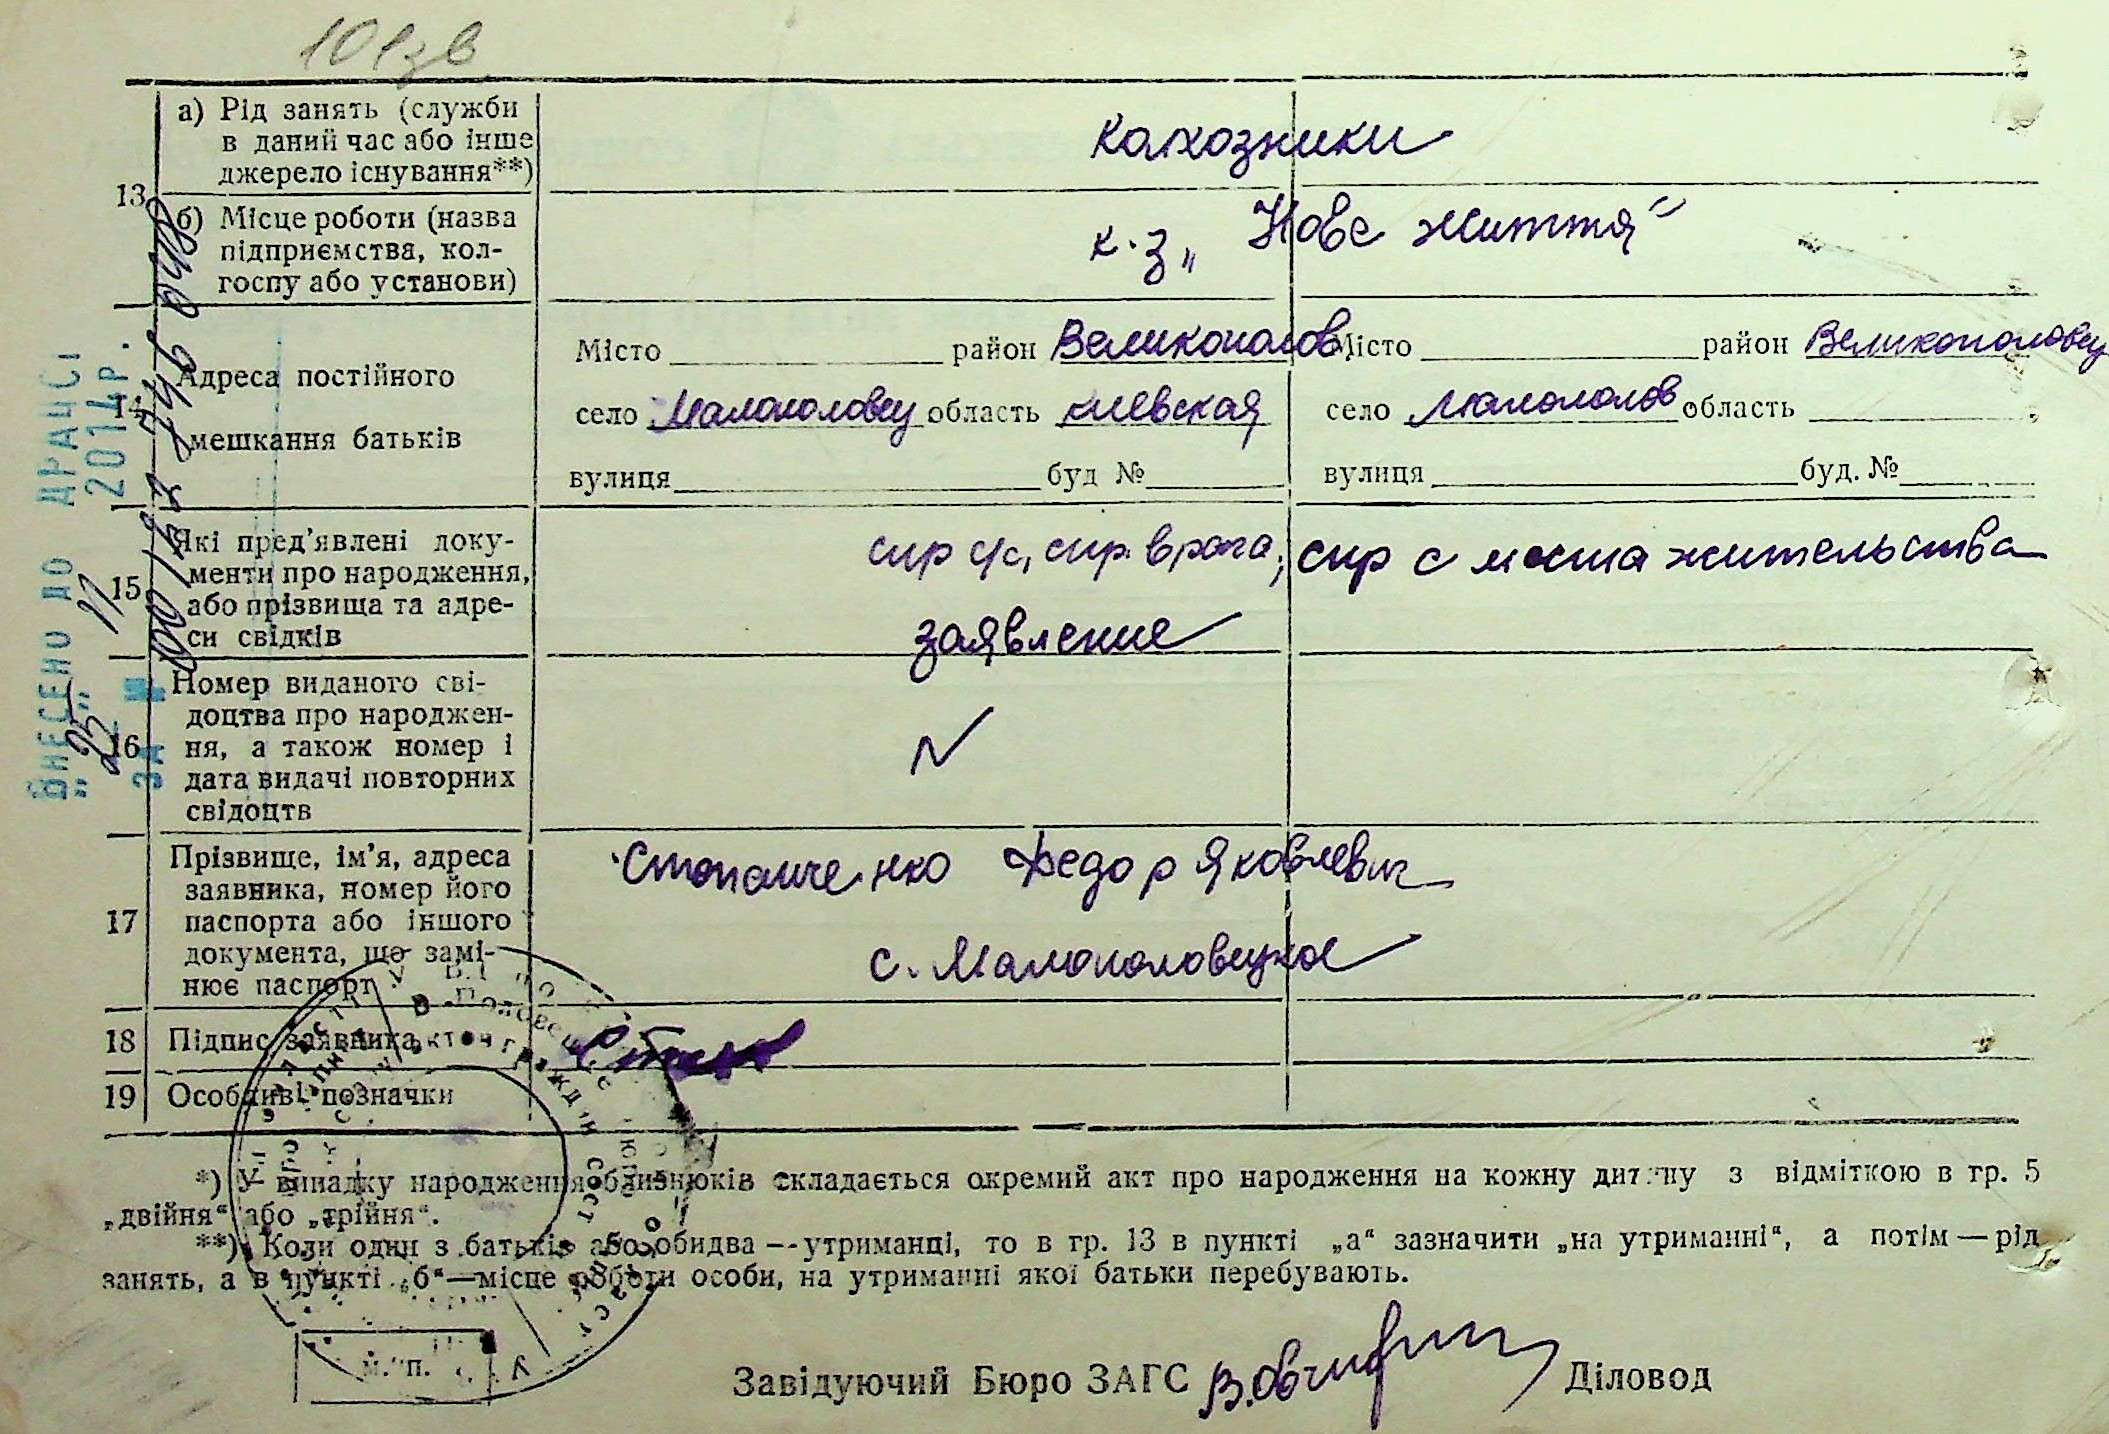 101зв
13 а) Рід занять (служби
в даний час або інше
джерело існування**)
колхозники
б) Місце роботи (назва
підприємства, кол-
госпу або установи)
к.з „Нове життя“
14 Адреса постійного
мешкання батьків
Місто район Великополов. Місто район Великополовец
село Малополовец область киевская село Малополов область
вулиця буд № вулиця буд. №
15 Які пред’явлені доку-
менти про народження,
або прізвища та адре-
си свідків
спр с/с, спр. врача, спр с места жительства
заявление
16 Номер виданого сві-
доцтва про народжен-
ня, а також номер і
дата видачі повторних
свідоцтв
N
17 Прізвище, ім’я, адреса
заявника, номер його
паспорта або іншого
документа, що замі-
нює паспорт
Федор Яковлевич
с. Малополовецкое
18 Підпис заявника
19 Особливі позначки
*) У випадку народження близнюків складається окремий акт про народження на кожну дитину з відміткою в гр. 5
„двійня“ або „трійня“.
**) Коли один з батьків або обидва — утриманці, то в гр. 13 в пункті „а“ зазначити „на утриманні“, а потім — рід
занять, а в пункті „б“—місце роботи особи, на утриманні якої батьки перебувають.
м. п.
Завідуючий Бюро ЗАГС Діловод
ВНЕСЕНО ДО ДРАЦСГ
„25“ 11 2014р.
ЗА №